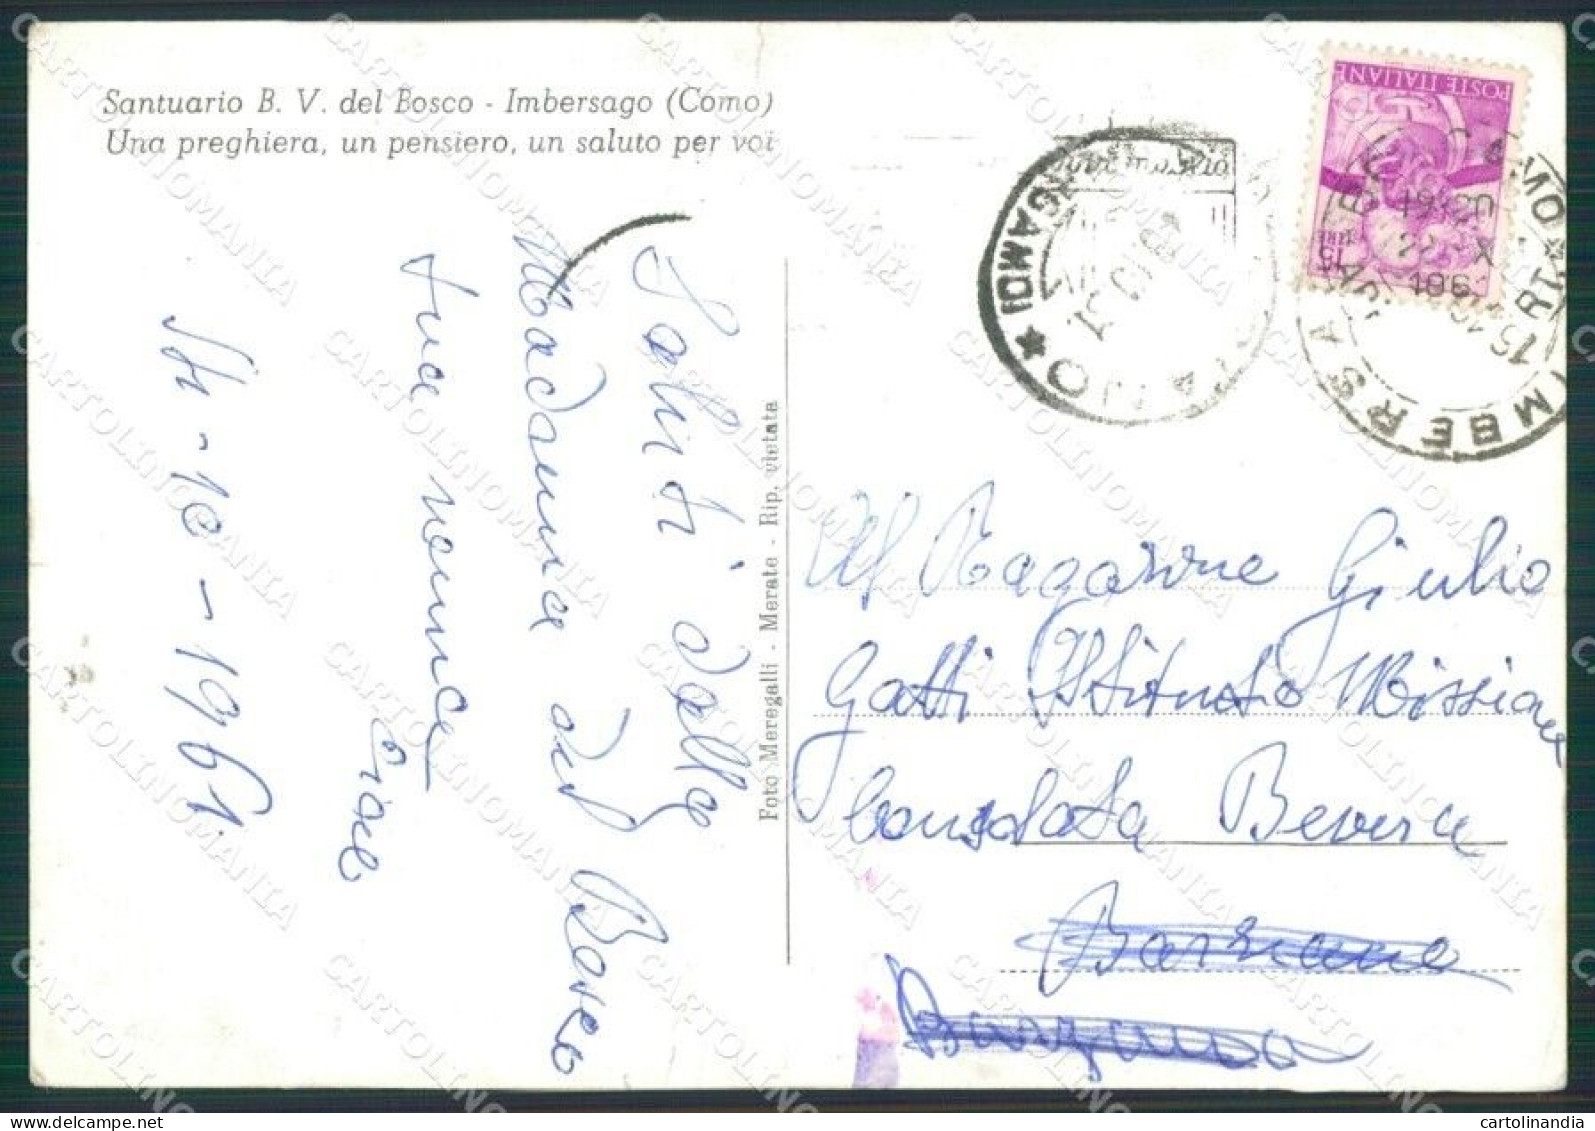 Santuario B. V. del Bosco - Imbersago (Como)
Una preghiera, un pensiero, un saluto per voi
Saluti dalla
Madonna del Bosco
tua nonna
14-10-1961.
Foto Meregalli - Merate - Rip. vietata
POSTE ITALIANE
LIRE 15
IMBERSA
Al Ragazzine Giulio
Gatti Istituto Missione
Consolata Bevera
Barziano
Bergamo
CARTOLINOMANIA